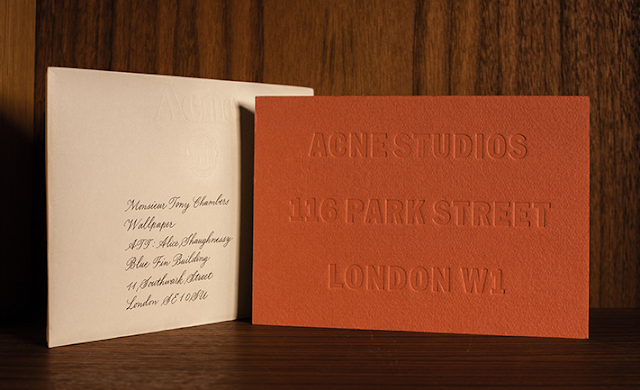 Monsieur Tony Chambers
Wallpaper
ATT: Alice Shaughnessy
Blue Fin Building
11, Southwark, Street
London, SE1 0SU
ACNE STUDIOS
116 PARK STREET
LONDON W1